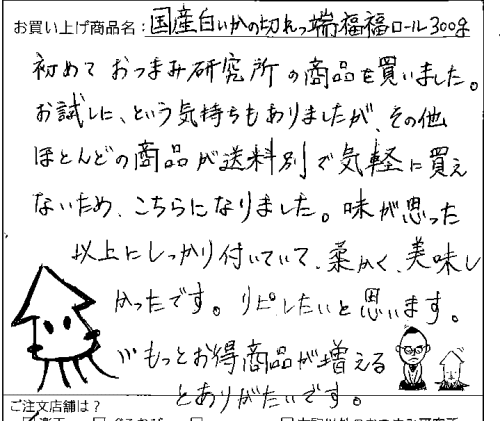 お買い上げ商品名:国産白いかの切れっ端福福ロール300g
初めておつまみ研究所の商品を買いました。
お試しに、という気持ちもありましたが、その他
ほとんどの商品が送料別で気軽に買え
ないため、こちらになりました。味が思った
以上にしっかり付いていて、柔かく、美味し
かったです。リピしたいと思います。
もっとお得商品が増える
とありがたいです。
ご注文店舗は?